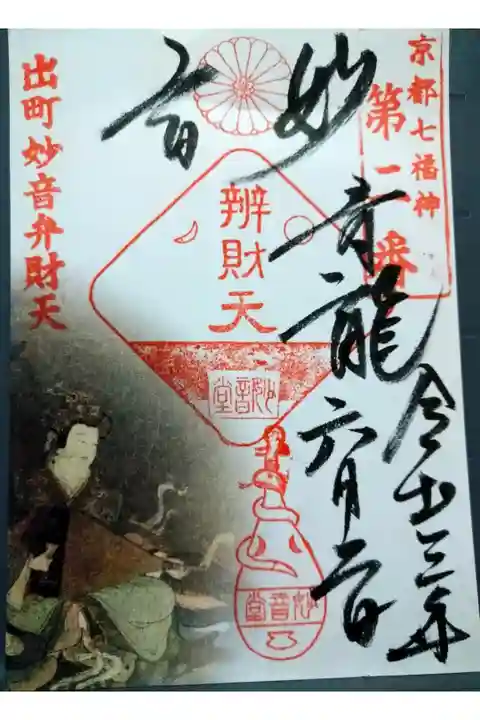 京都七福神
第二番
妙音
青龍
令和三年
六月二日
辨財天
妙音堂
妙音堂
出町妙音弁財天